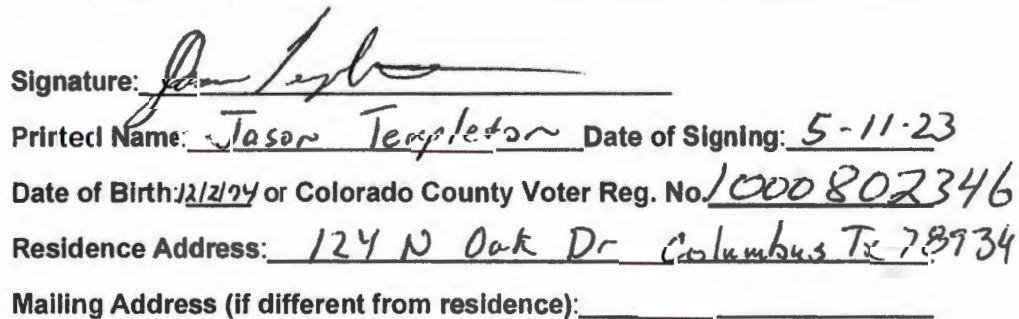 Signature:
Printed Name: Jason Templeton Date of Signing: 5-11-23
Date of Birth: 12/2/74 or Colorado County Voter Reg. No. 1000802346
Residence Address: 124 N Oak Dr Columbus Tx 78934
Mailing Address (if different from residence):